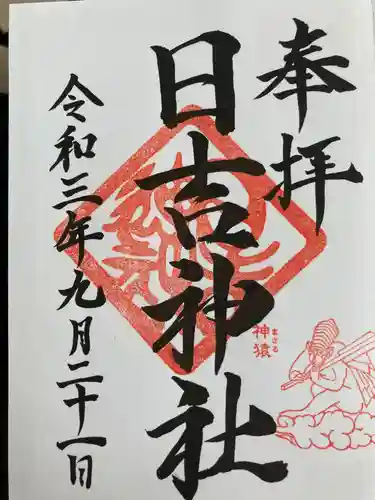 奉拝
日吉神社
令和三年九月二十一日
神猿
まさる